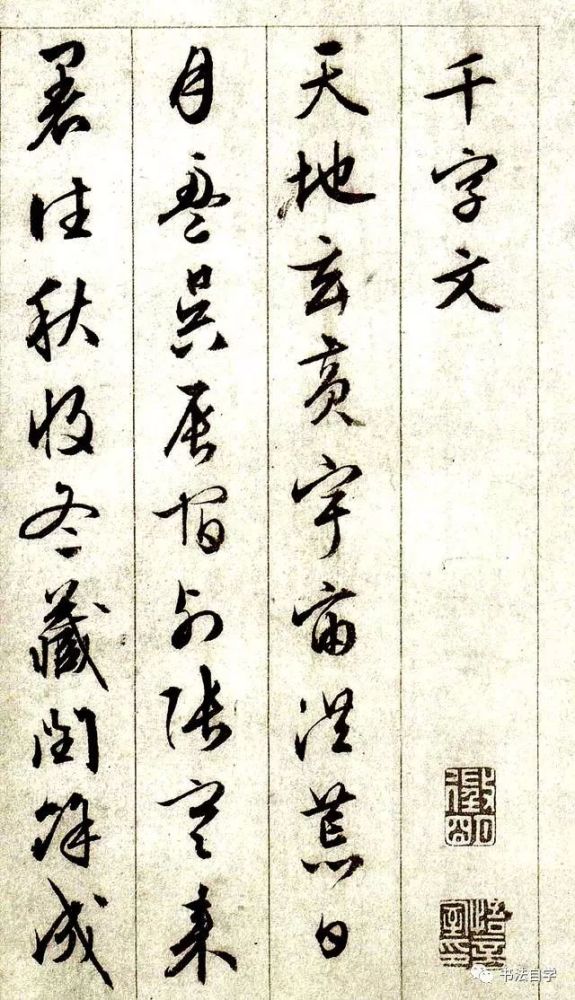 千字文
天地玄黄宇宙洪荒日
月盈昃辰宿列張寒来
暑往秋收冬藏閏餘成
徵明
悟言室印
书法自学